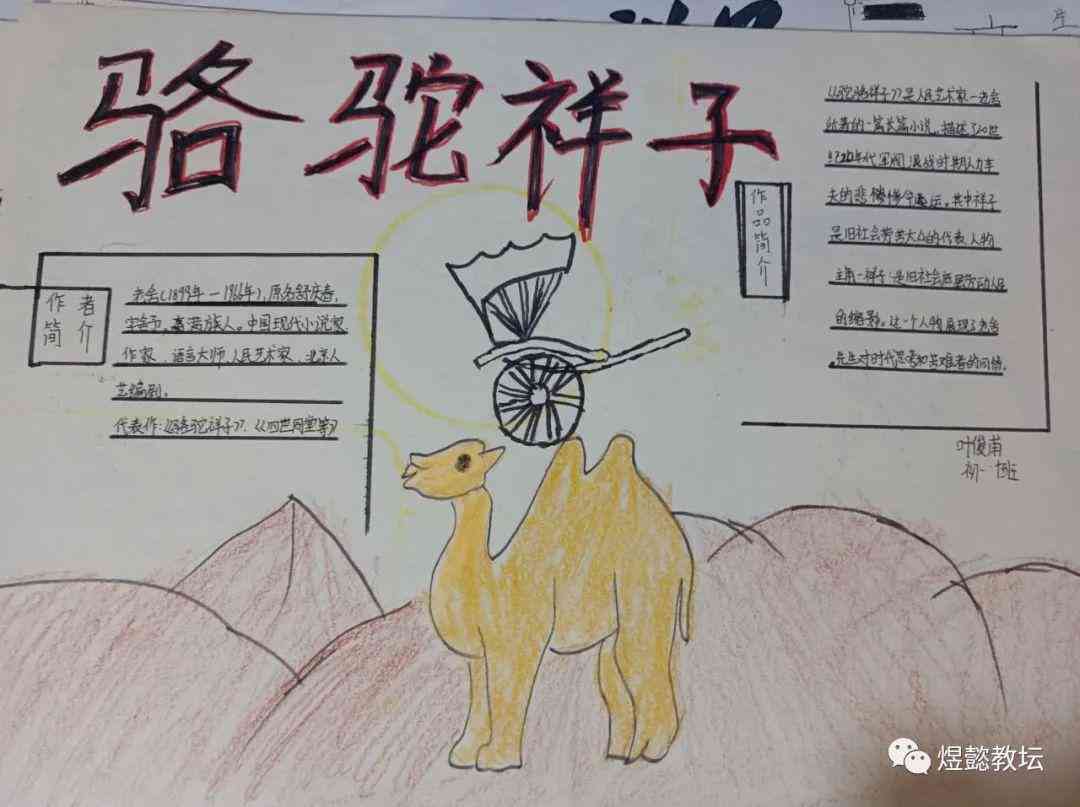 骆驼祥子
作者
简介
老舍(1899年—1966年),原名舒庆春,
字舍予,满族人。中国现代小说家
作家、语言大师、人民艺术家、北京人
艺编剧。
代表作:《骆驼祥子》、《四世同堂等》
作品简介
《骆驼祥子》是人民艺术家—老舍
所著的一篇长篇小说,描述了20世
纪20年代军阀混战时期人力车
夫的悲惨命运。其中祥子
是旧社会劳苦大众的代表人物
主角—祥子是旧社会底层劳动人民
的缩影。这一个人物展现了老舍
先生对时代思考和苦难者的同情。
叶俊甫
初一 班
煜懿教坛